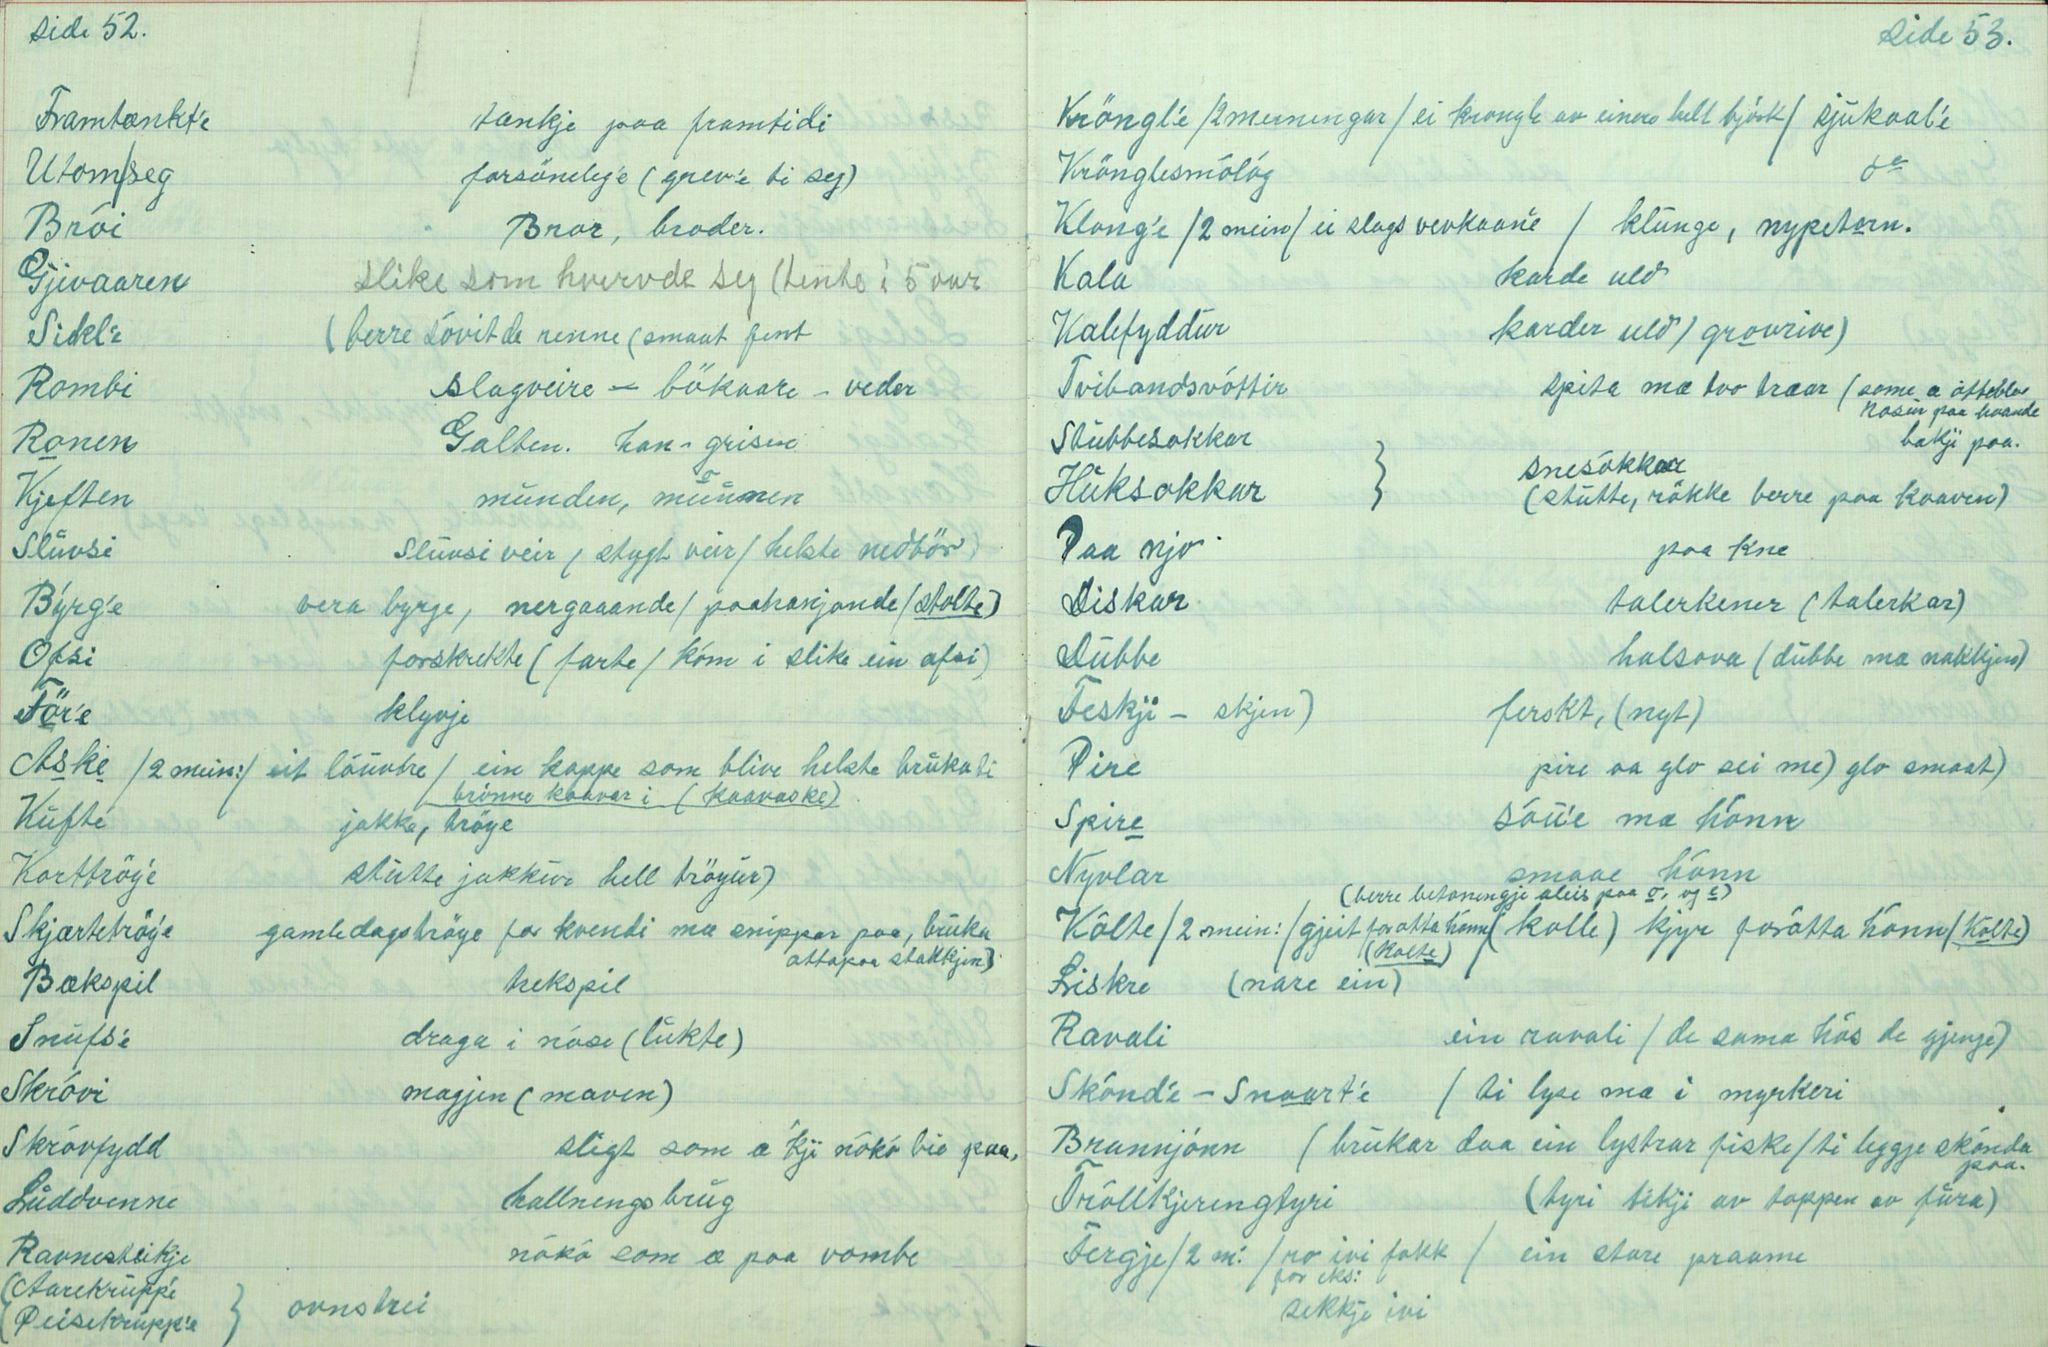 side 52.
Framtænkt'e tænkje paa framtidi
Utom/seg forsöneleg'e (grev'e ti seg)
Brói Bror, broder.
Gjivaaren slike som hvervde seg (tente i 5 aar
Sikl'e (berre sóvit de renne (smaat fent
Rombi slagveire - bökaare - veder
Ronen Galten. han-grisen
Kjeften munden, muunnen
Slüvsi Slüvsi veir / stygt veir / helste nedbör)
Býrg'e vera byrge, nergaaande / paahanjande / stolte)
Ofsi forskrekte (farte / kóm i slike ein ofsi)
För'e klyvje
Aske /2 mein:/ eit lóuvtre / ein koppe som blive helste brüka ti
brónne kaavar i (kaavaske)
Küfte jakke, tröye
Korttröy'e stütte jakkür hell tröyür)
Skjærtetröy'e gamledagströye for kvendi mæ snippar paa, brüka
attapaa stakkjen)
Bækspil hekspil
Snüfs'e draga i nóse (lükte)
Skróvi magjen (maven)
Skróvfydd sligt som æ 'kji nókó bio paa,
Lüddvenne hallnengsbrüg
Ravnesteikje nókó som æ paa vombe
(Aarekrüpp'e
(Peisekrüpp'e } ovnstrei
side 53.
Kröngl'e /2 meiningar / ei krongle av einer hell björk / sjükaal'e
Krönglesmólóg do
Klong'e /2 mein / ei slags verkaan'e / klünge, nypetorn.
Kala karde uld
Kalefyddür karder uld / grovrive)
Tvibandsvóttir spita mæ tvo træar (some æ åtteblas
rósür paa haande
bakji paa.
Stübbesokkar
Hüksokkar } snesókkar
(stütte, rókke berre paa kaaven)
Paa njo paa kne
Diskar talerkener (talerkar)
Dübbe halsova (dübbe mæ nakkjen)
Feskji - skjen) ferskt, (nyt)
Pire pire aa glo sei me) glo smaat)
Spire sóü'e mæ hónn
Nyvlar smaae hónn
(berre betoningje aleis paa o, og e)
Kólte /2 mein: / gjeit forótta hónn (kolle) kjyr forótta hónn (Kólte)
(Kolte)
Liskre (nare ein)
Ravali ein ravali / de sama hós de gjenge)
Skónd'e - Snaart'e / ti lyse mæ i myrkeri
Brannjónn (brükar daa ein lystrar fiske / ti leggje skónda
paa.
Tróllkjeringtyri (tyri tikji av toppen av füra)
Fergje /2 m: /ro ivi folk / ein store praame
for eks:
sekkje ivi